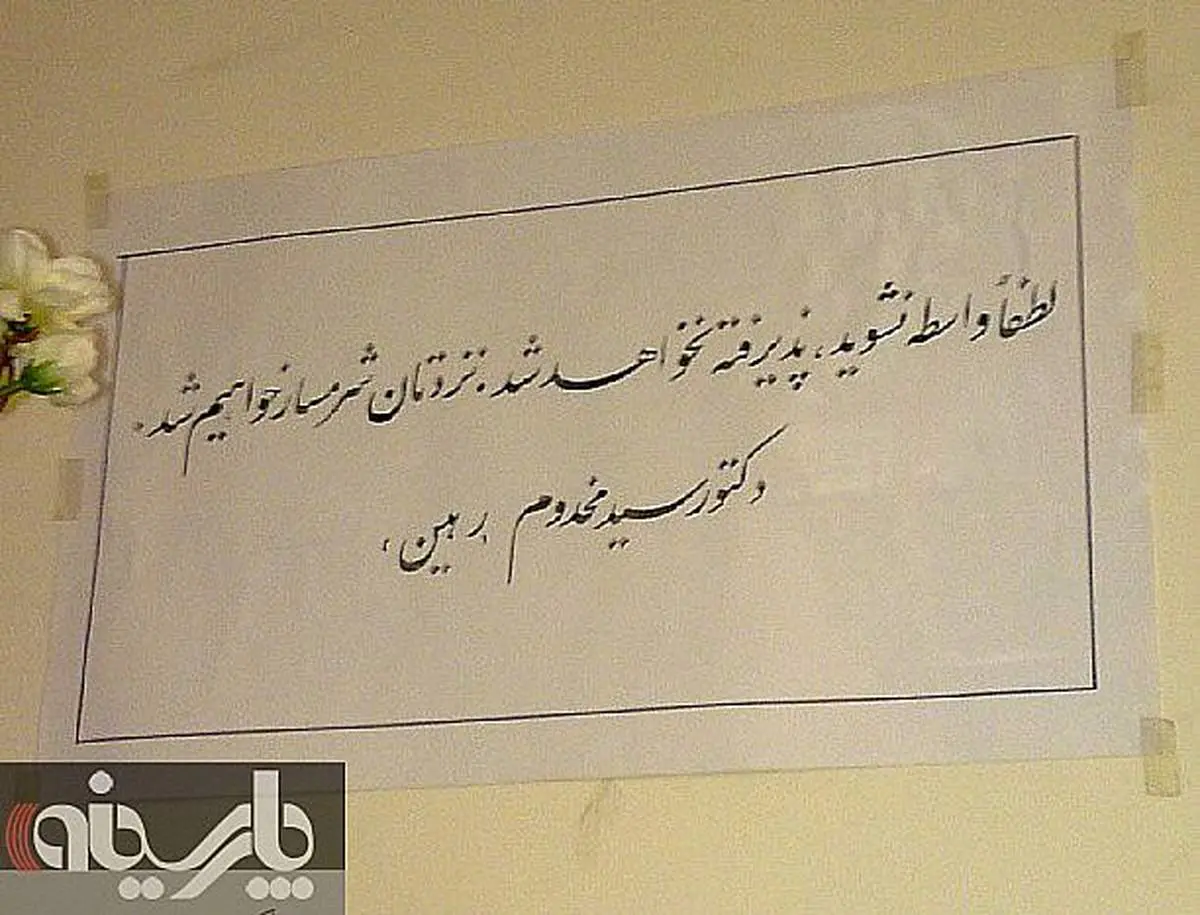 لطفاً واسطه نشوید، پذیرفته نخواهد شد. نزدتان شرمسار خواهیم شد.
دکتور سید مخدوم رهین،
پارسینه